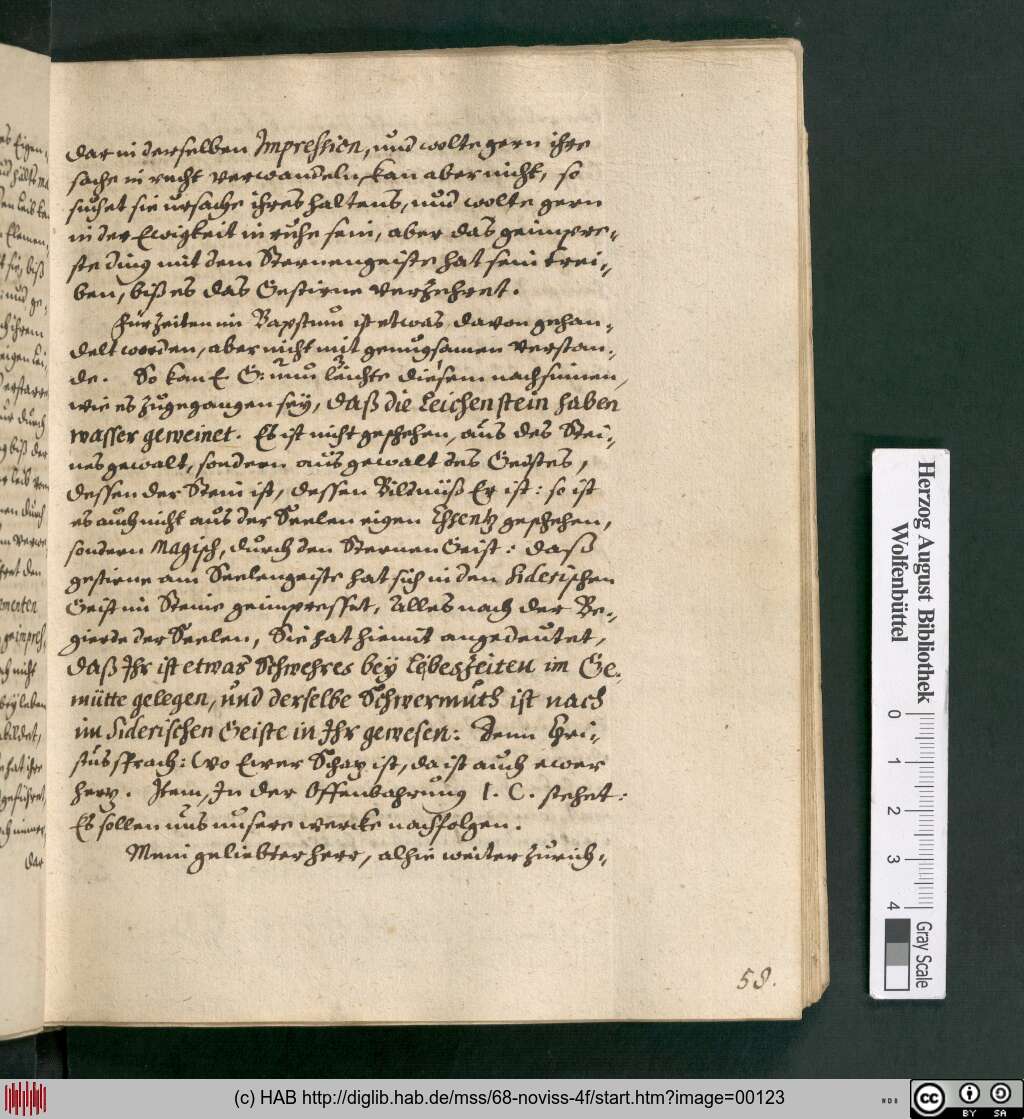 dar in derselben Impression, und wolte gern ihre
sache in recht verwandeln, kan aber nicht, so
suchet sie ursache ihres haltens, und wolte gern
in der Ewigkeit in ruhe sein, aber das geimpre-
ste ding mit dem Sternengeiste hat sein trei-
ben, biß es das Gestirne verzehret.
Für Zeiten im Bapstum ist etwas davon gehan-
delt worden, aber nicht mit genugsamen verstan-
de. So kan E. G: nun leichte diesem nachsinnen,
wie es zugegangen sey, daß die Leichenstein haben
wasser geweinet. Es ist nicht geschehen, aus des Stei-
nes gewalt, sondern aus gewalt des Geistes,
dessen der Stein ist, dessen Bildnüß Er ist: so ist
es auch nicht aus der Seelen eigen Eßentz geschehen,
sondern Magisch, durch den Sternen Geist: daß
gestirne am Seelengeiste hat sich in den siderischen
Geist im Steine geimpresset, Alles nach der Be-
gierde der Seelen, Sie hat hiemit angedeutet,
daß Ihr ist etwas Schwehres bey Lebeszeiten im Ge-
mütte gelegen, und derselbe Schwermuth ist noch
im siderischen Geiste in Ihr gewesen: Denn Chri-
stus sprach: Wo Ewer Schaz ist, da ist auch ewer
herz. Item, In der Offenbahrung I. C. stehet:
Es sollen uns unsere wercke nachfolgen.
Mein geliebter herr, alhie weiter zurich-
58.
Herzog August Bibliothek
Wolfenbüttel
0 1 2 3 4
Gray Scale
(c) HAB http://diglib.hab.de/mss/68-noviss-4f/start.htm?image=00123
cc BY SA